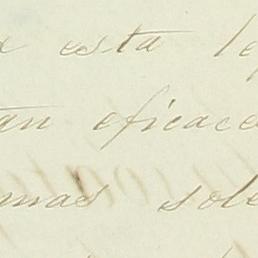 a esta le
tan eficace
mas sole